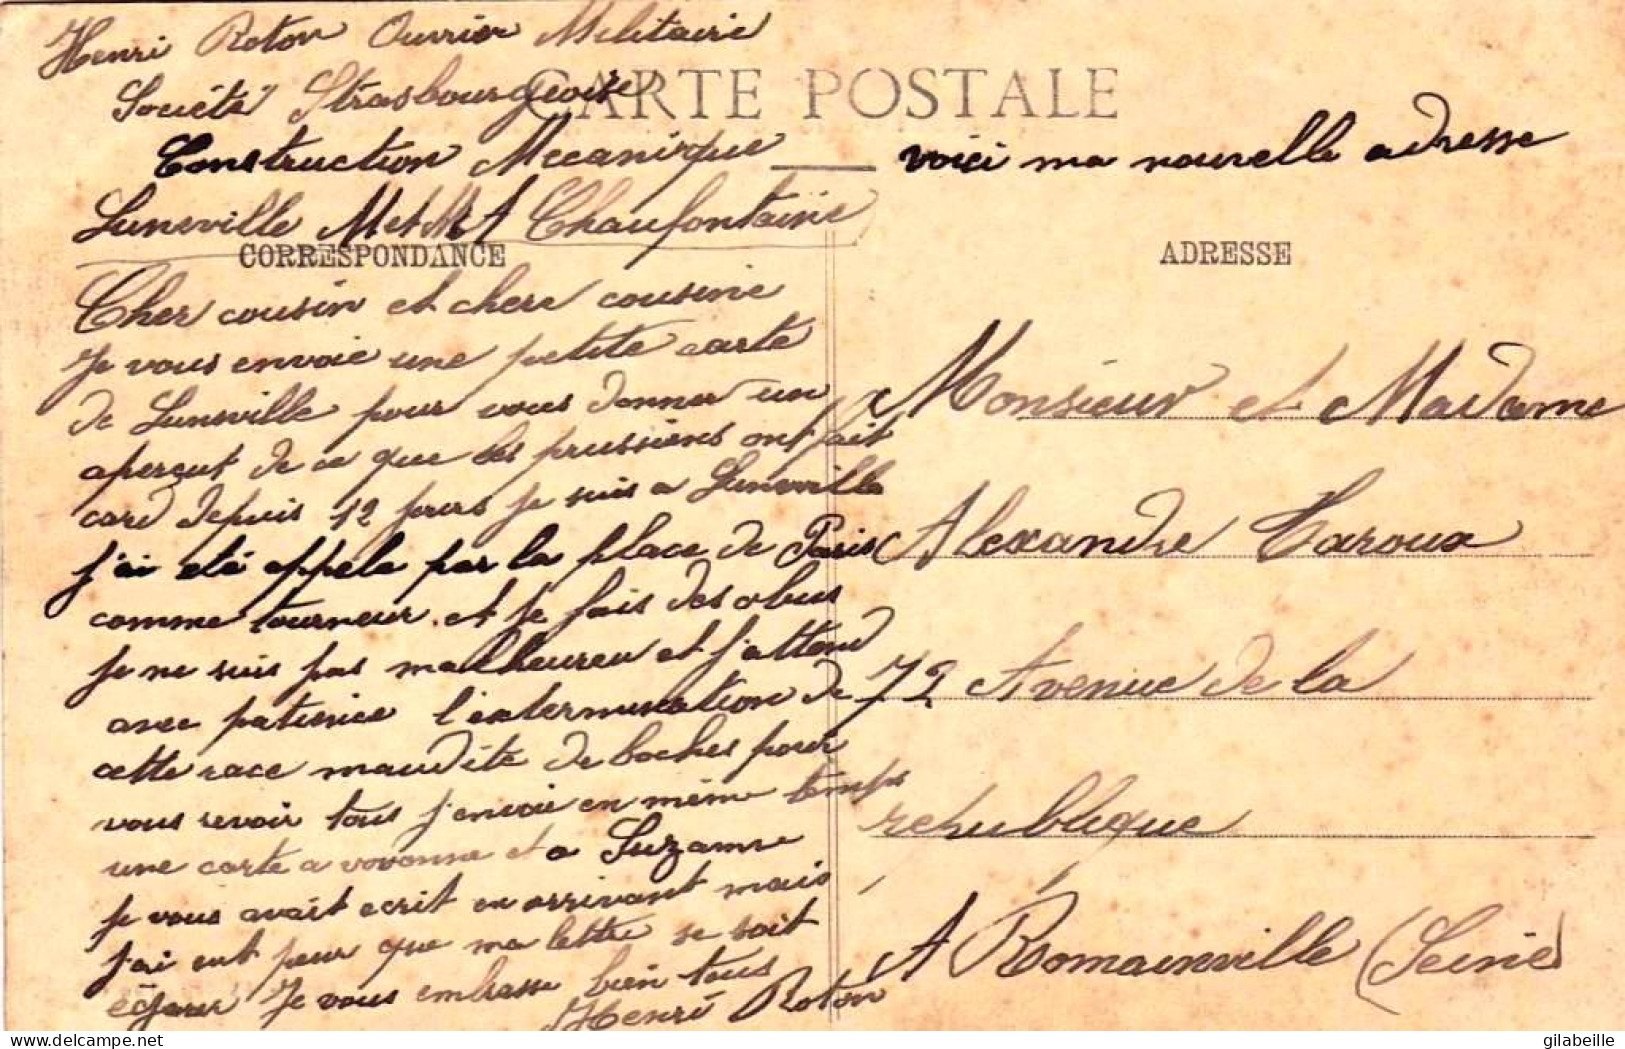 Henri Roton Ouvrier Militaire
Société Strasbourgeoise
CARTE POSTALE
Construction Mecanique
voici ma nouvelle adresse
Luneville M et M A Chaufontaine
CORRESPONDANCE
ADRESSE
Cher cousin et chere cousine
Je vous envoie une petite carte
de Luneville pour vous donner un
aperçut de ce que les prussiens ont fait
card depuis 12 jours je suis a Luneville
j'ai eté appele par la place de Paris
comme tourneur et je fais des obus
je ne suis pas malheureu et j'attend
avec patience l'extermination de
cette race maudite de boches pour
vous revoir tous j'envoie en même temps
une carte a vovonne et a Suzanne
je vous avait ecrit en arrivant mais
j'ai eut peur que ma lettre se soit
égarer Je vous embrasse bien tous
Henri Roton
Monsieur et Madame
Alexandre Taroux
72 Avenue de la
republique
A Romainville (Seine)
delcampe.net
gilabeille